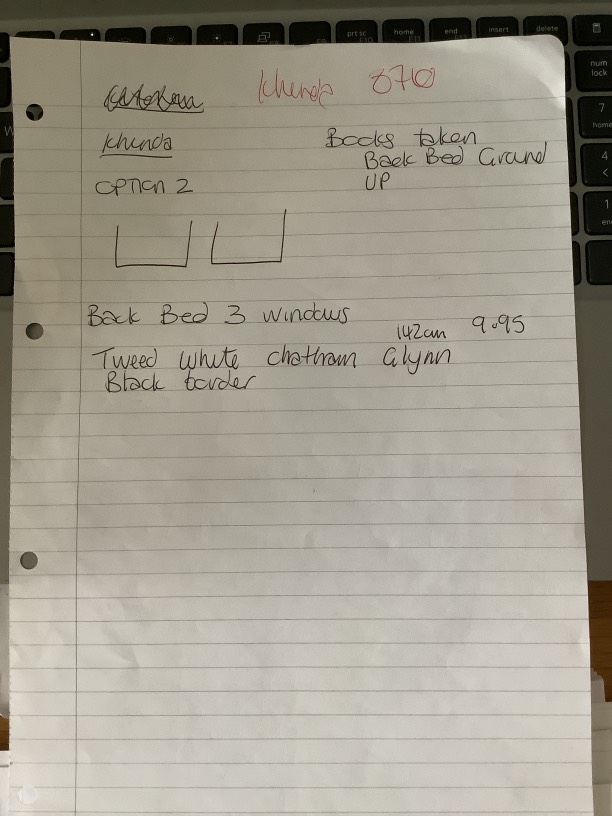 Khunda 070
Khunda
Books taken
Back Bed Ground
UP
OPTION 2
Back Bed 3 windows
142cm 9.95
Tweed white chatham Glynn
Black border
prt sc
F10
home
F11
end
F12
insert
delete
num
lock
7
home
4
<
1
en
W